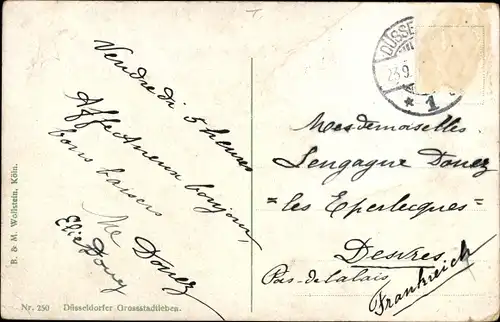 Vendredi 5 heures
Affectueux bonjour,
bons baisers
Me Douez
Elie Douez
DÜSSE
23.9.
* 1
Mesdemoiselles
Lengagne Douez
"les Eperlecques"
Desvres
Pas-de-Calais
Frankreich
B. & M. Wollstein, Köln.
Nr. 250 Düsseldorfer Grossstadtleben.